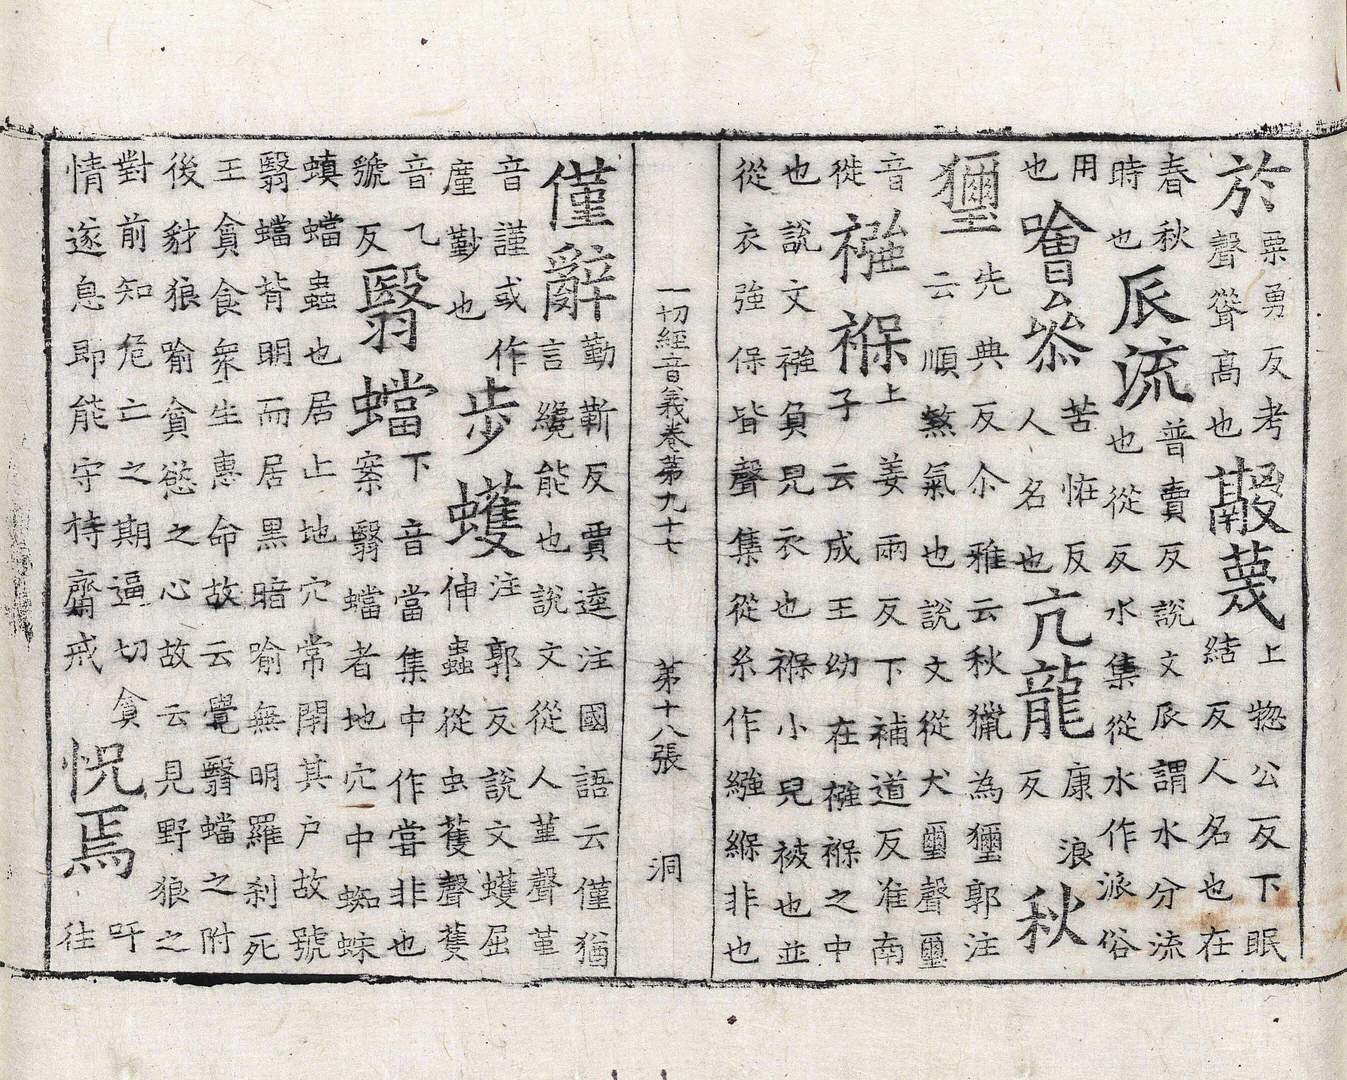 於粟勇反考聲聳高也鬷蔑上揔公反下眠結反人名也在
春秋時也𠂢流普賣反說文𠂢謂水分流也從反水集從水作派俗
用也噲參苦恠反人名也亢龍康浪反秋
獮先典反尒雅云秋獵為獮郭注云順煞氣也說文從犬璽聲璽
音從襁褓上姜兩反下補道反准南子云成王幼在襁褓之中
也說文襁負兒衣也褓小兒被也並從衣強保皆聲集從糸作繦緥非也
一切經音義卷第九十七 第十八張 洞
僅辭勤靳反賈逵注國語云僅猶言纔能也說文從人堇聲堇
音謹或作廑懃也步蠖注郭反說文蠖屈伸蟲從虫蒦聲蒦
音乁號反翳蟷下音當集中作嘗非也案翳蟷者地穴中蜘蛛
螏蟷蟲也居止地穴常閉其戶故號翳蟷背明而居黑暗喻無明羅剎死
王貪食衆生惠命故云覺翳蟷之附後豺狼喻貪慾之心故云見野狼之
對前知危亡之期逼切貪情遂息即能守持齋戒怳焉吁往